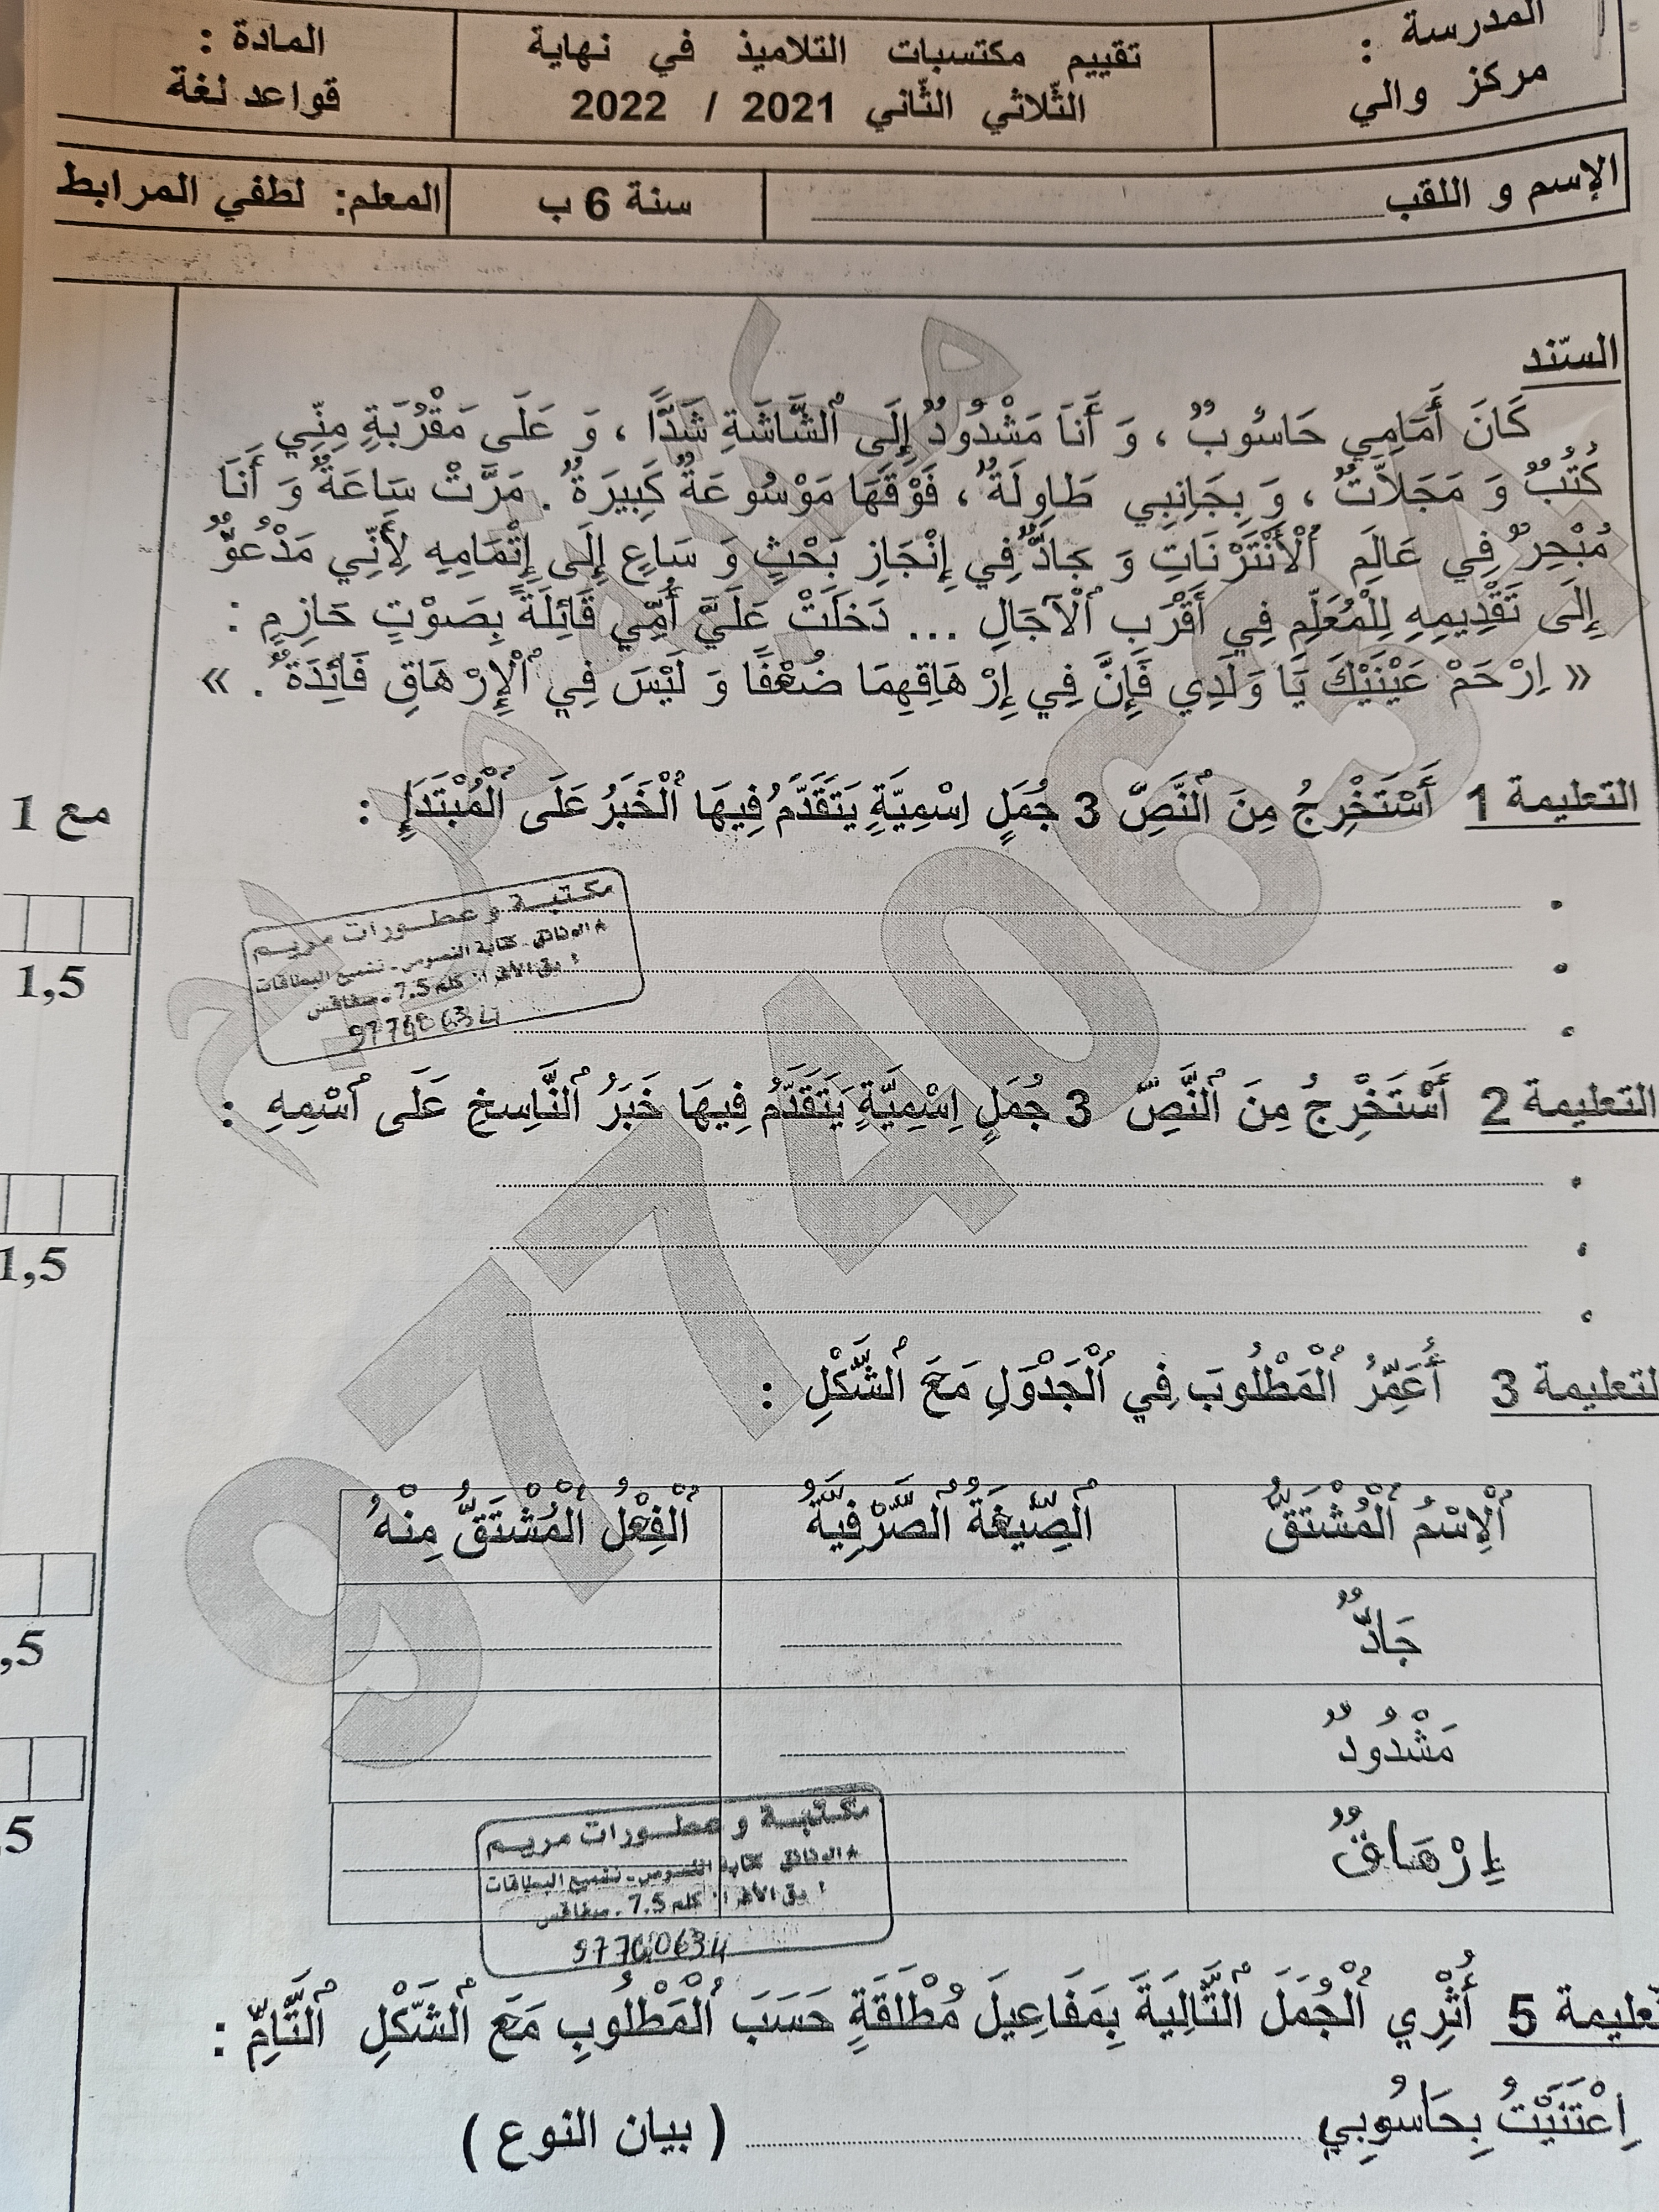 المدرسة :
مركز والي
تقييم مكتسبات التلاميذ في نهاية
الثّلاثي الثّاني 2021 / 2022
المادة :
قواعد لغة
الإسم و اللقب
سنة 6 ب
المعلم: لطفي المرابط
السّند
كَانَ أَمَامِي حَاسُوبٌ ، وَ أَنَا مَشْدُودٌ إِلَى ٱلشَّاشَةِ شَدًّا ، وَ عَلَى مَقْرُبَةٍ مِنِّي
كُتُبٌ وَ مَجَلاَّتٌ ، وَ بِجَانِبِي طَاوِلَةٌ ، فَوْقَهَا مَوْسُوعَةٌ كَبِيرَةٌ . مَرَّتْ سَاعَةٌ وَ أَنَا
مُبْحِرٌ فِي عَالَمِ ٱلْأَنْتَرْنَاتِ وَ جَادٌّ فِي إِنْجَازِ بَحْثٍ وَ سَاعٍ إِلَى إِتْمَامِهِ لِأَنِّي مَدْعُوٌّ
إِلَى تَقْدِيمِهِ لِلْمُعَلِّمِ فِي أَقْرَبِ ٱلْآجَالِ ... دَخَلَتْ عَلَيَّ أُمِّي قَائِلَةً بِصَوْتٍ حَازِمٍ :
« اِرْحَمْ عَيْنَيْكَ يَا وَلَدِي فَإِنَّ فِي إِرْهَاقِهِمَا ضُعْفًا وَ لَيْسَ فِي ٱلْإِرْهَاقِ فَائِدَةٌ . »
التعليمة 1 أَسْتَخْرِجُ مِنَ ٱلنَّصِّ 3 جُمَلٍ اِسْمِيَّةٍ يَتَقَدَّمُ فِيهَا ٱلْخَبَرُ عَلَى ٱلْمُبْتَدَإِ :
مع 1
1,5
مكتبة و عطورات مريم
كلم 7.5 . صفاقس
97740634
التعليمة 2 أَسْتَخْرِجُ مِنَ ٱلنَّصِّ 3 جُمَلٍ اِسْمِيَّةٍ يَتَقَدَّمُ فِيهَا خَبَرُ ٱلنَّاسِخِ عَلَى ٱسْمِهِ :
1,5
لتعليمة 3 أُعَمِّرُ ٱلْمَطْلُوبَ فِي ٱلْجَدْوَلِ مَعَ ٱلشَّكْلِ :
ٱلْاِسْمُ ٱلْمُشْتَقُّ
ٱلصِّيغَةُ ٱلصَّرْفِيَّةُ
ٱلْفِعْلُ ٱلْمُشْتَقُّ مِنْهُ
جَادٌّ
,5
مَشْدُودٌ
إِرْهَاقٌ
,5
مكتبة و عطورات مريم
كلم 7.5 . صفاقس
97740634
تعليمة 5 أُثْرِي ٱلْجُمَلَ ٱلتَّالِيَةَ بِمَفَاعِيلَ مُطْلَقَةٍ حَسَبَ ٱلْمَطْلُوبِ مَعَ ٱلشَّكْلِ ٱلتَّامِّ :
اِعْتَنَيْتُ بِحَاسُوبِي ( بيان النوع )
97740634